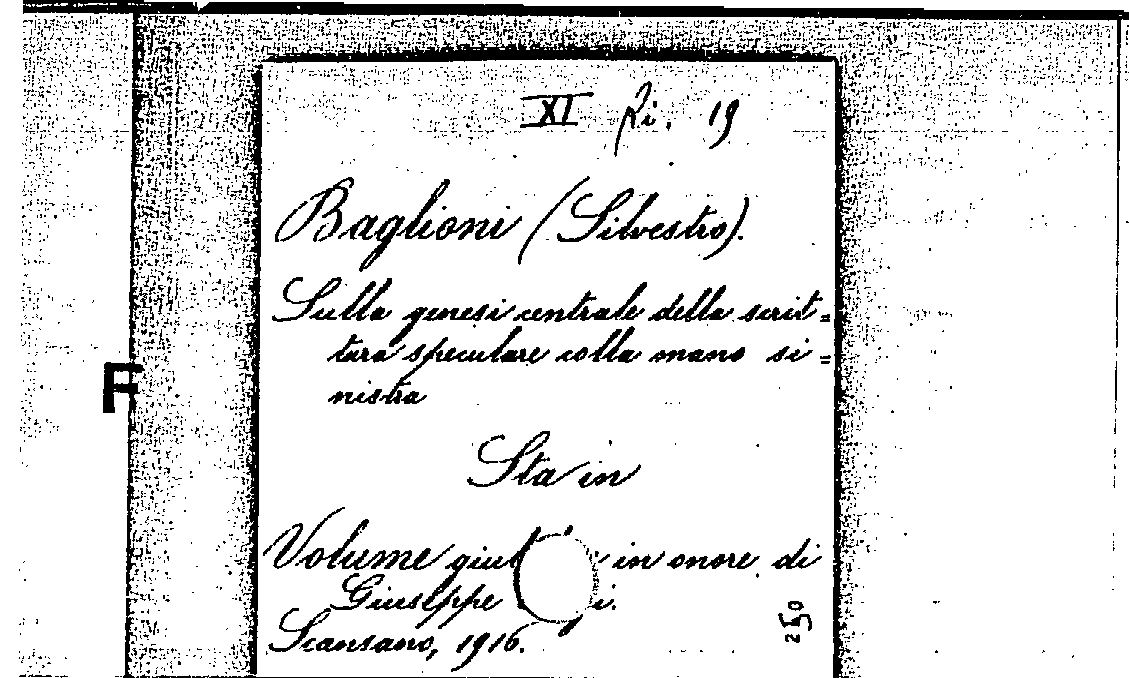 XI Ri. 19
Baglioni (Silvestro).
Sulla genesi centrale della scrit=
tura speculare colla mano si=
nistra
Sta in
Volume in onore di
Giuseppe
Scansano, 1916.
250
F